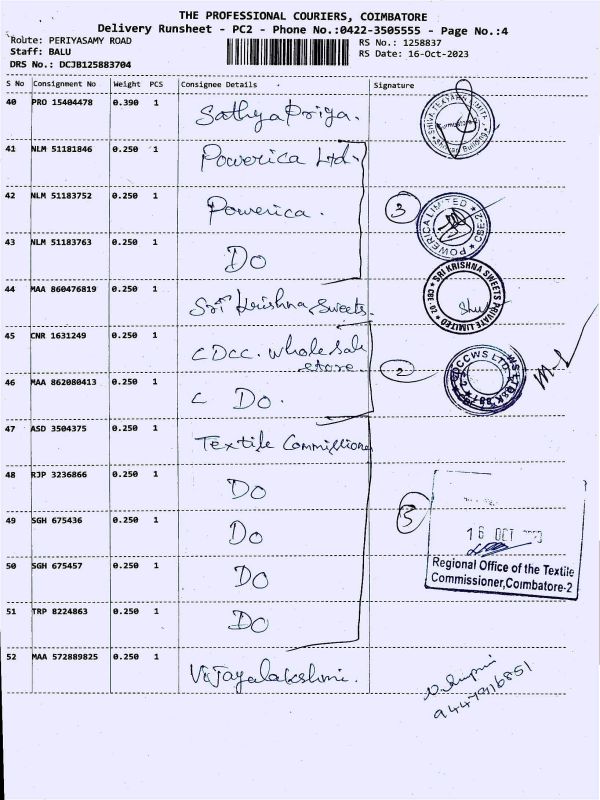 THE PROFESSIONAL COURIERS, COIMBATORE
Delivery Runsheet - PC2 - Phone No.:0422-3505555 - Page No.:4
Route: PERIYASAMY ROAD RS No.: 1258837
Staff: BALU RS Date: 16-Oct-2023
DRS No.: DCJB125883704
S No Consignment No Weight PCS Consignee Details Signature
40 PRO 15404478 0.390 1 Sathya Priya.
41 NLM 51181846 0.250 1 Powerica Ltd.
42 NLM 51183752 0.250 1 Powerica. 3
POWERICA LIMITED CBE-2
43 NLM 51183763 0.250 1 Do
SRI KRISHNA SWEETS PRIVATE LIMITED
44 MAA 860476819 0.250 1 Sri Krishna Sweets.
45 CNR 1631249 0.250 1 CDCC. Wholesale
store 2
46 MAA 862080413 0.250 1 C Do.
47 ASD 3504375 0.250 1 Textile Commissioner
48 RJP 3236866 0.250 1 Do
49 SGH 675436 0.250 1 Do 5
16 OCT
50 SGH 675457 0.250 1 Do
Regional Office of the Textile
Commissioner,Coimbatore-2
51 TRP 8224863 0.250 1 Do
52 MAA 572889825 0.250 1 Vijayalakshmi.
9447916851